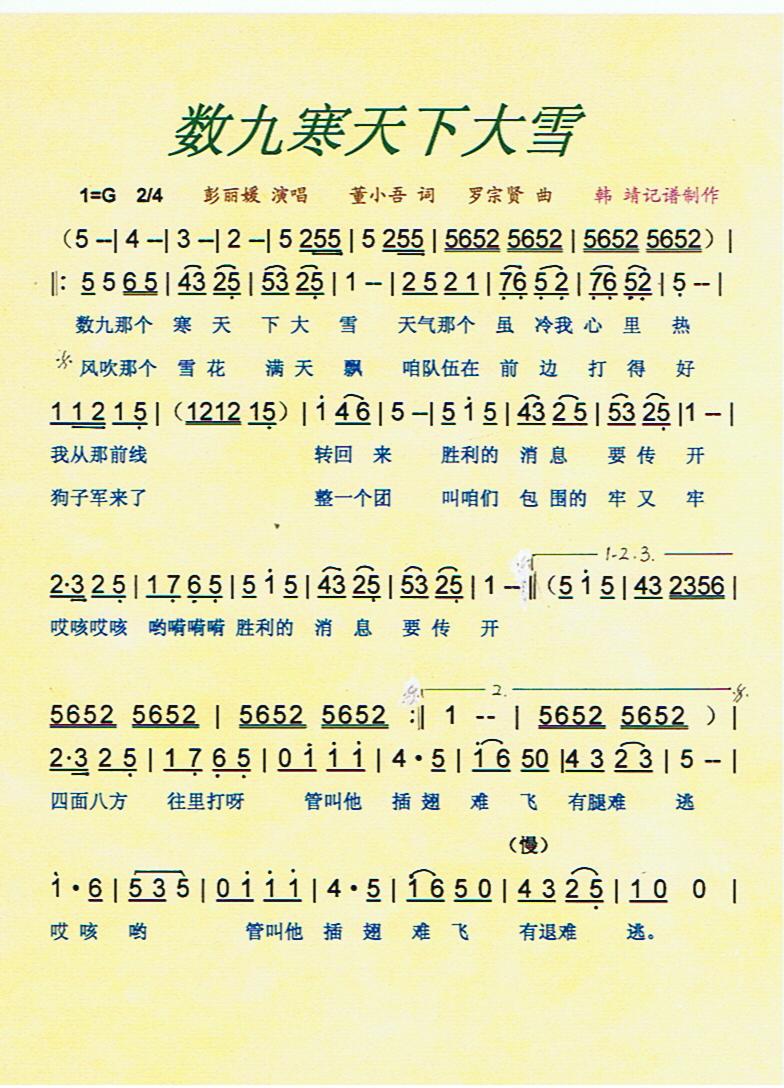 数九寒天下大雪
1=G 2/4 彭丽媛 演唱 董小吾 词 罗宗贤 曲 韩 靖记谱制作
（5 --| 4 --| 3 --| 2 --| 5 255 | 5 255 | 5652 5652 | 5652 5652）|
‖: 5 5 6 5 | 43 25 | 53 25 | 1 -- | 2 5 2 1 | 76 5 2 | 76 52 | 5 -- |
数九那个 寒 天 下 大 雪 天气那个 虽 冷我 心 里 热
风吹那个 雪 花 满 天 飘 咱队伍在 前 边 打 得 好
1 1 2 1 5 |（1212 15）| i 4 6 | 5 --| 5 i 5 | 43 2 5 | 53 25 |1 -- |
我从那前线 转回 来 胜利的 消 息 要 传 开
狗子军来了 整一个团 叫咱们 包 围的 牢 又 牢
1-2.3.
2·3 2 5 | 1 7 6 5 | 5 i 5 | 43 25 | 53 25 | 1 --‖（5 i 5 | 43 2356 |
哎咳哎咳 哟嗬嗬嗬 胜利的 消 息 要 传 开
2.
5652 5652 | 5652 5652 :‖ 1 -- | 5652 5652 ）|
2·3 2 5 | 1 7 6 5 | 0 i i i | 4 · 5 | i 6 50 |4 3 2 3 | 5 -- |
四面八方 往里打呀 管叫他 插 翅 难 飞 有腿难 逃
（慢）
i · 6 | 5 3 5 | 0 i i i | 4 · 5 | i 6 5 0 | 4 3 2 5 | 1 0 0 |
哎 咳 哟 管叫他 插 翅 难 飞 有退难 逃。